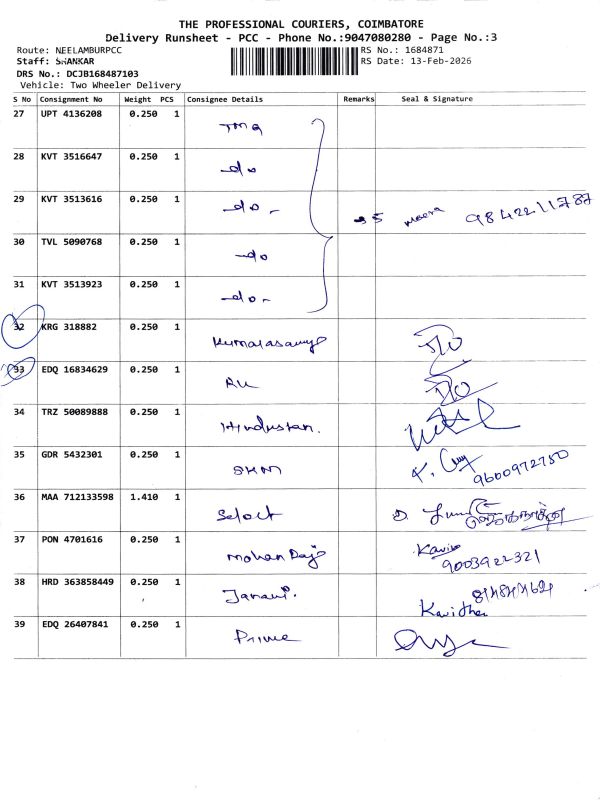 THE PROFESSIONAL COURIERS, COIMBATORE
Delivery Runsheet - PCC - Phone No.:9047080280 - Page No.:3
Route: NEELAMBURPCC RS No.: 1684871
Staff: SHANKAR RS Date: 13-Feb-2026
DRS No.: DCJB168487103
Vehicle: Two Wheeler Delivery
S No Consignment No Weight PCS Consignee Details Remarks Seal & Signature
27 UPT 4136208 0.250 1 TMG
28 KVT 3516647 0.250 1 -do
29 KVT 3513616 0.250 1 -do- 35 Meera 9842211787
30 TVL 5090768 0.250 1 -do
31 KVT 3513923 0.250 1 -do-
32 KRG 318882 0.250 1 Kumarasamy
33 EDQ 16834629 0.250 1
34 TRZ 50089888 0.250 1 Hindustan.
35 GDR 5432301 0.250 1 SKM 9600972750
36 MAA 712133598 1.410 1 Select
37 PON 4701616 0.250 1 Mohan Raj Kavin
9003922321
38 HRD 363858449 0.250 1 Janani. Kavitha
39 EDQ 26407841 0.250 1 Prime